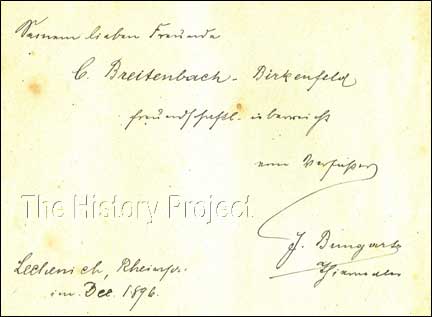 Seinem lieben Freunde
C. Breitenbach - Birkenfeld
freundschaftl. überreicht
vom Verfasser
The History Project
J. Bungartz
Lechenich, Rheinpr.
im Dec. 1896.